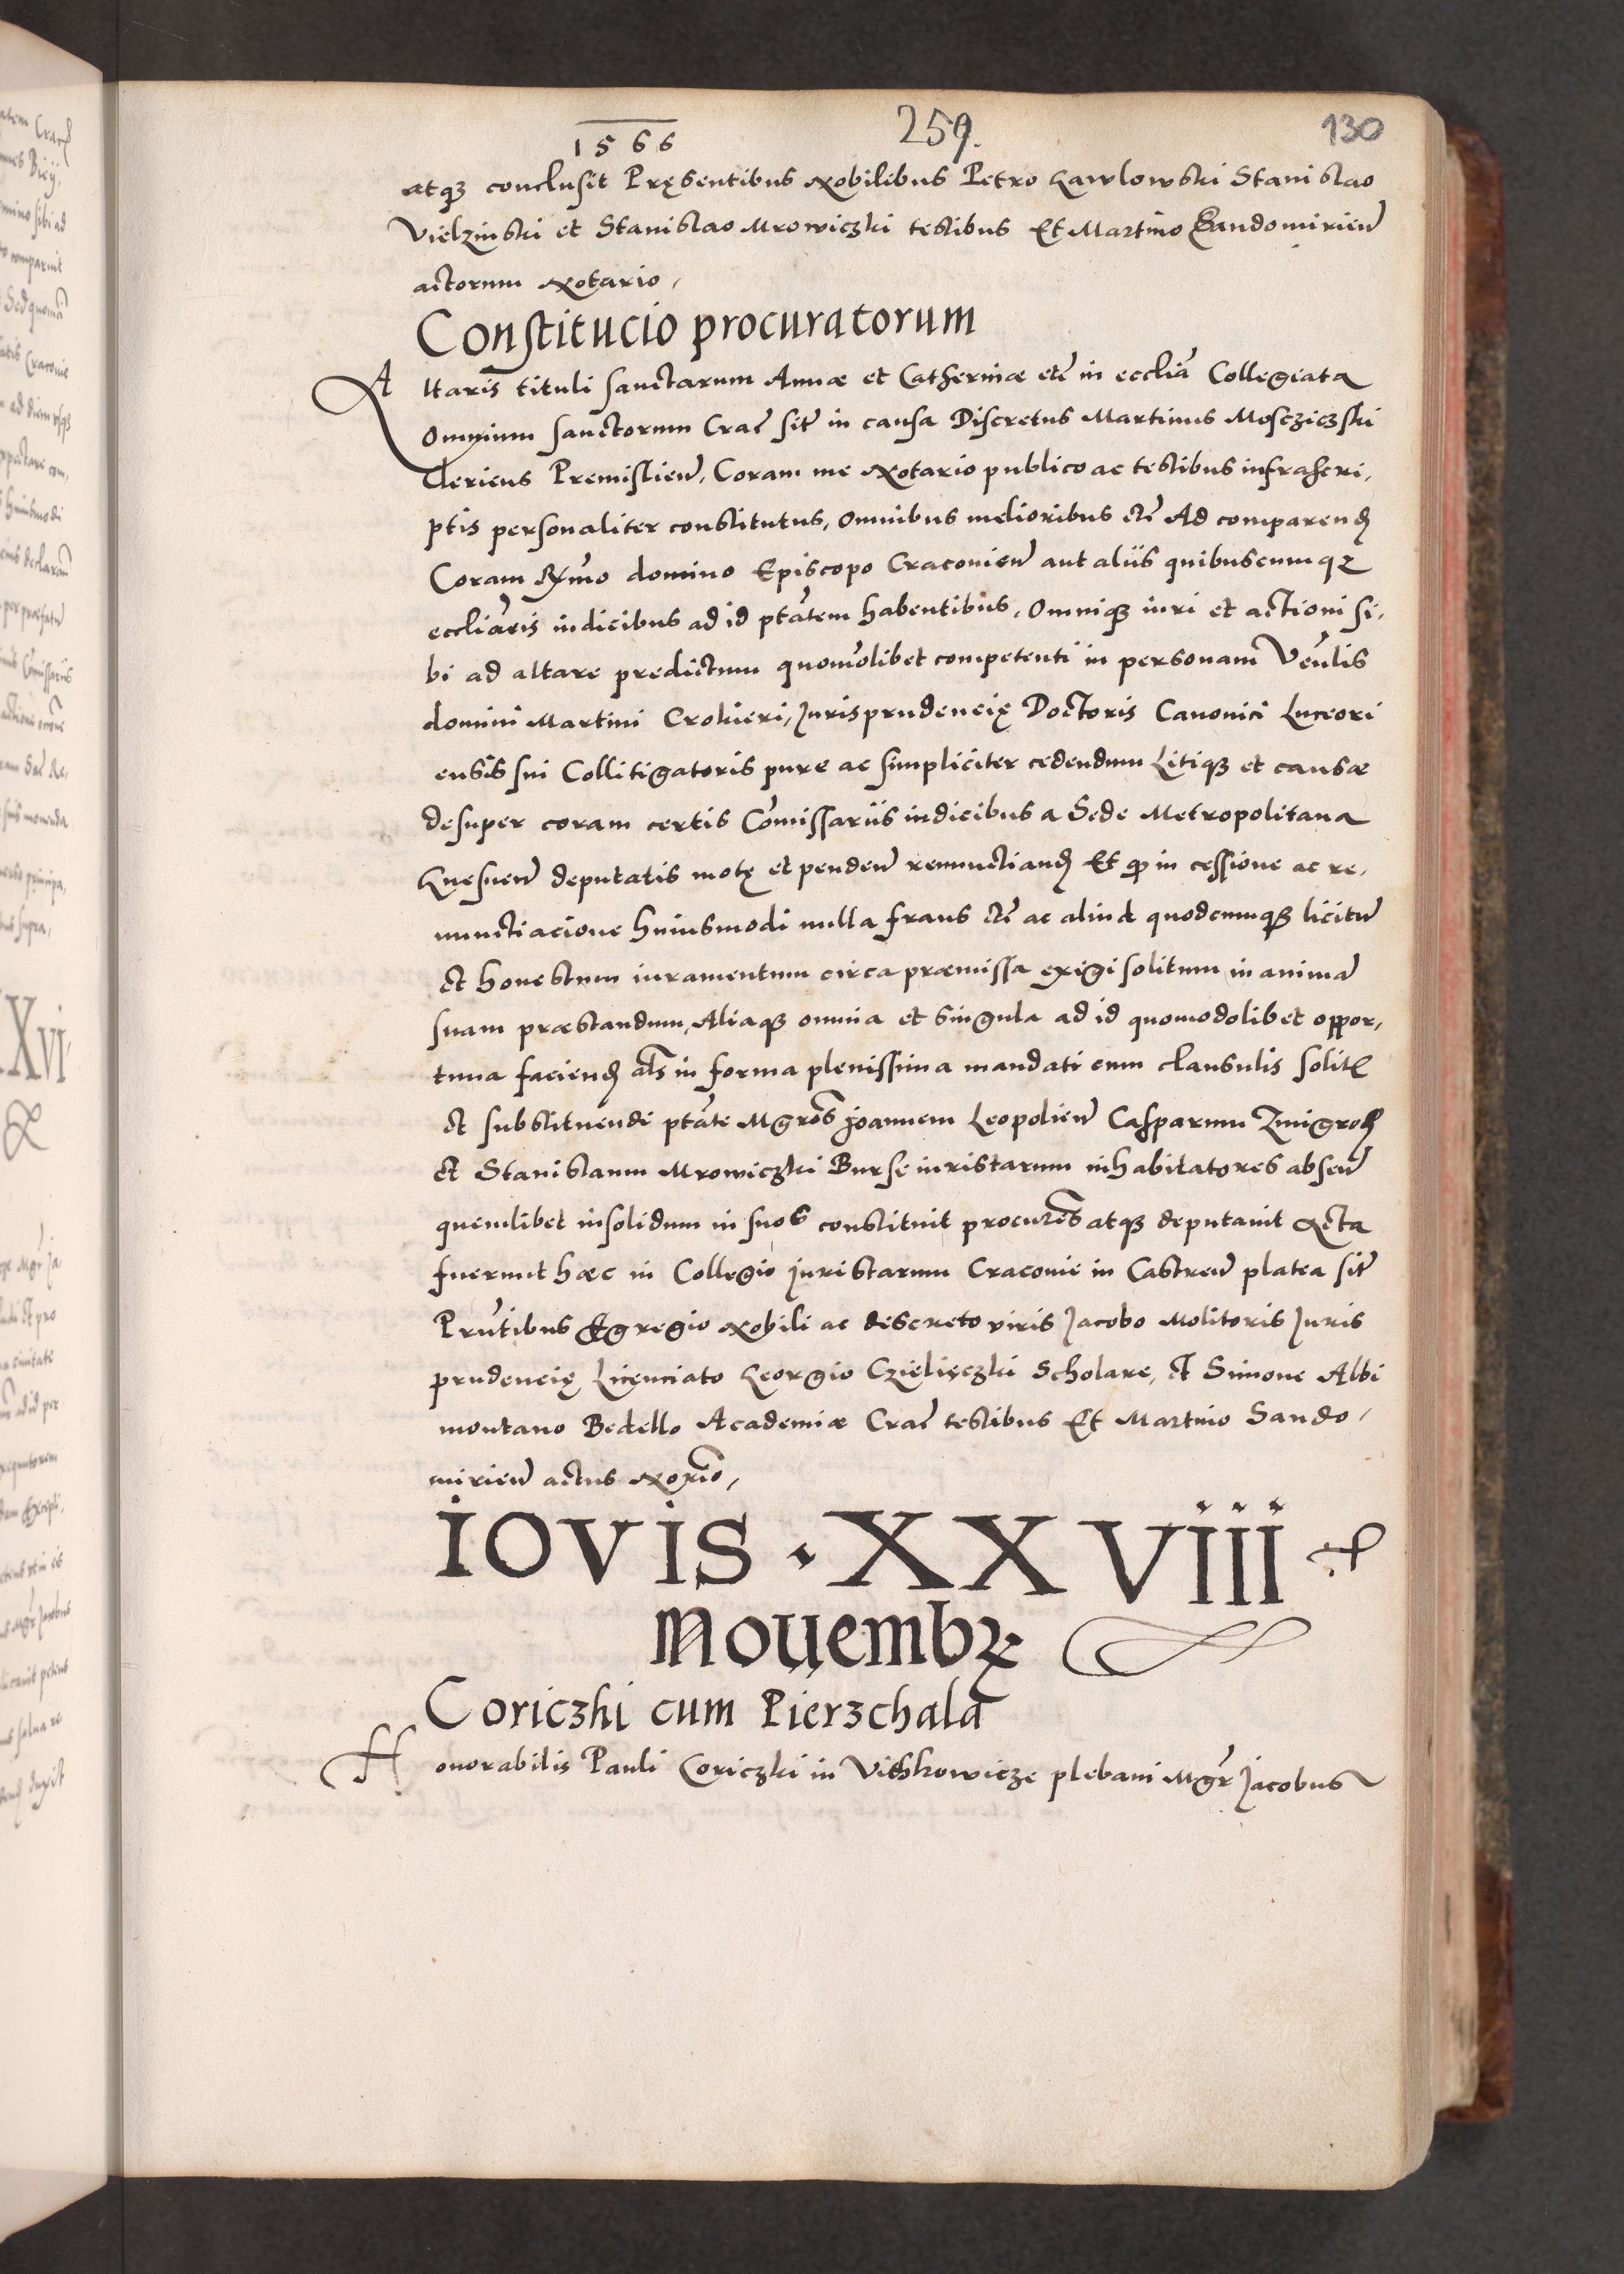 1566
259.
130
atqꝫ conclusit Pręsentibus Nobilibus Petro Gawlowski Stanislao
Vielzinski et Stanislao Mrowiczki testibus Et Martino Sandomirien̄
actorum Notario,
Constitucio procuratorum
Altaris tituli sanctarum Annæ et Catherinæ etc̄ in eccliā Collegiata
Omnium sanctorum Crac̄ sit̄ in causa Discretus Martinus Moscziczski
Clericus Premislien̄, Coram me Notario publico ac testibus infrascri,
ptis personaliter constitutus, omnibus melioribus etc̄ Ad comparendꝭ
Coram Rm̄o domino Episcopo Cracovien̄ aut aliis quibuscumqꝫ
eccliāris iudicibus ad id ptātem habentibus, Omniqꝫ iuri et actioni si,
bi ad altare predictum quomōlibet competenti in personam Venlīs
domini Martini Crokieri, Jurisprudencię Doctoris Canonici Luceori
ensis sui Collitigatoris pure ac simpliciter cedendum Litiqꝫ et causæ
desuper coram certis Com̄issariis iudicibus a Sede Metropolitana
Gnesnen̄ deputatis motę et penden̄ renunctiandꝭ Et ꝙ in cessione ac re,
nunctiacione huiusmodi nulla fraus etc̄ ac aliud quodcumqꝫ licitū
et honestum iuramentum circa præmissa exigi solitum in animā
suam præstandum, Aliaqꝫ omnia et singula ad id quomodolibet oppor,
tuna faciendꝭ als̄ in forma plenissima mandati cum clausulis solitꝭ
et substituendi ptāte Mgros̄ Joannem Leopolien̄ Casparum Zmigrodꝭ
et Stanislaum Mrowiczki Burse iuristarum inhabitatores absen̄
quemlibet insolidum in suos constituit procurēs atqꝫ deputauit Acta
fuerunt hæc in Collegio Juristarum Cracouie in Castren̄ platea sit̄
Prn̄tibus Egregio Nobili ac descreto viris Jacobo Molitoris Juris
prudencię Licenciato Georgio Czielięczki Scholare, et Simone Albi
montano Bedello Academiæ Crac̄ testibus Et Martino Sando,
mirien̄ actus Norīo,
IOVIS · XXVIII
Nouembꝶ
Coriczki cum Pierzchala
Honorabilis Pauli Coriczki in Vithkowicze plebani Mgr̄ Jacobus